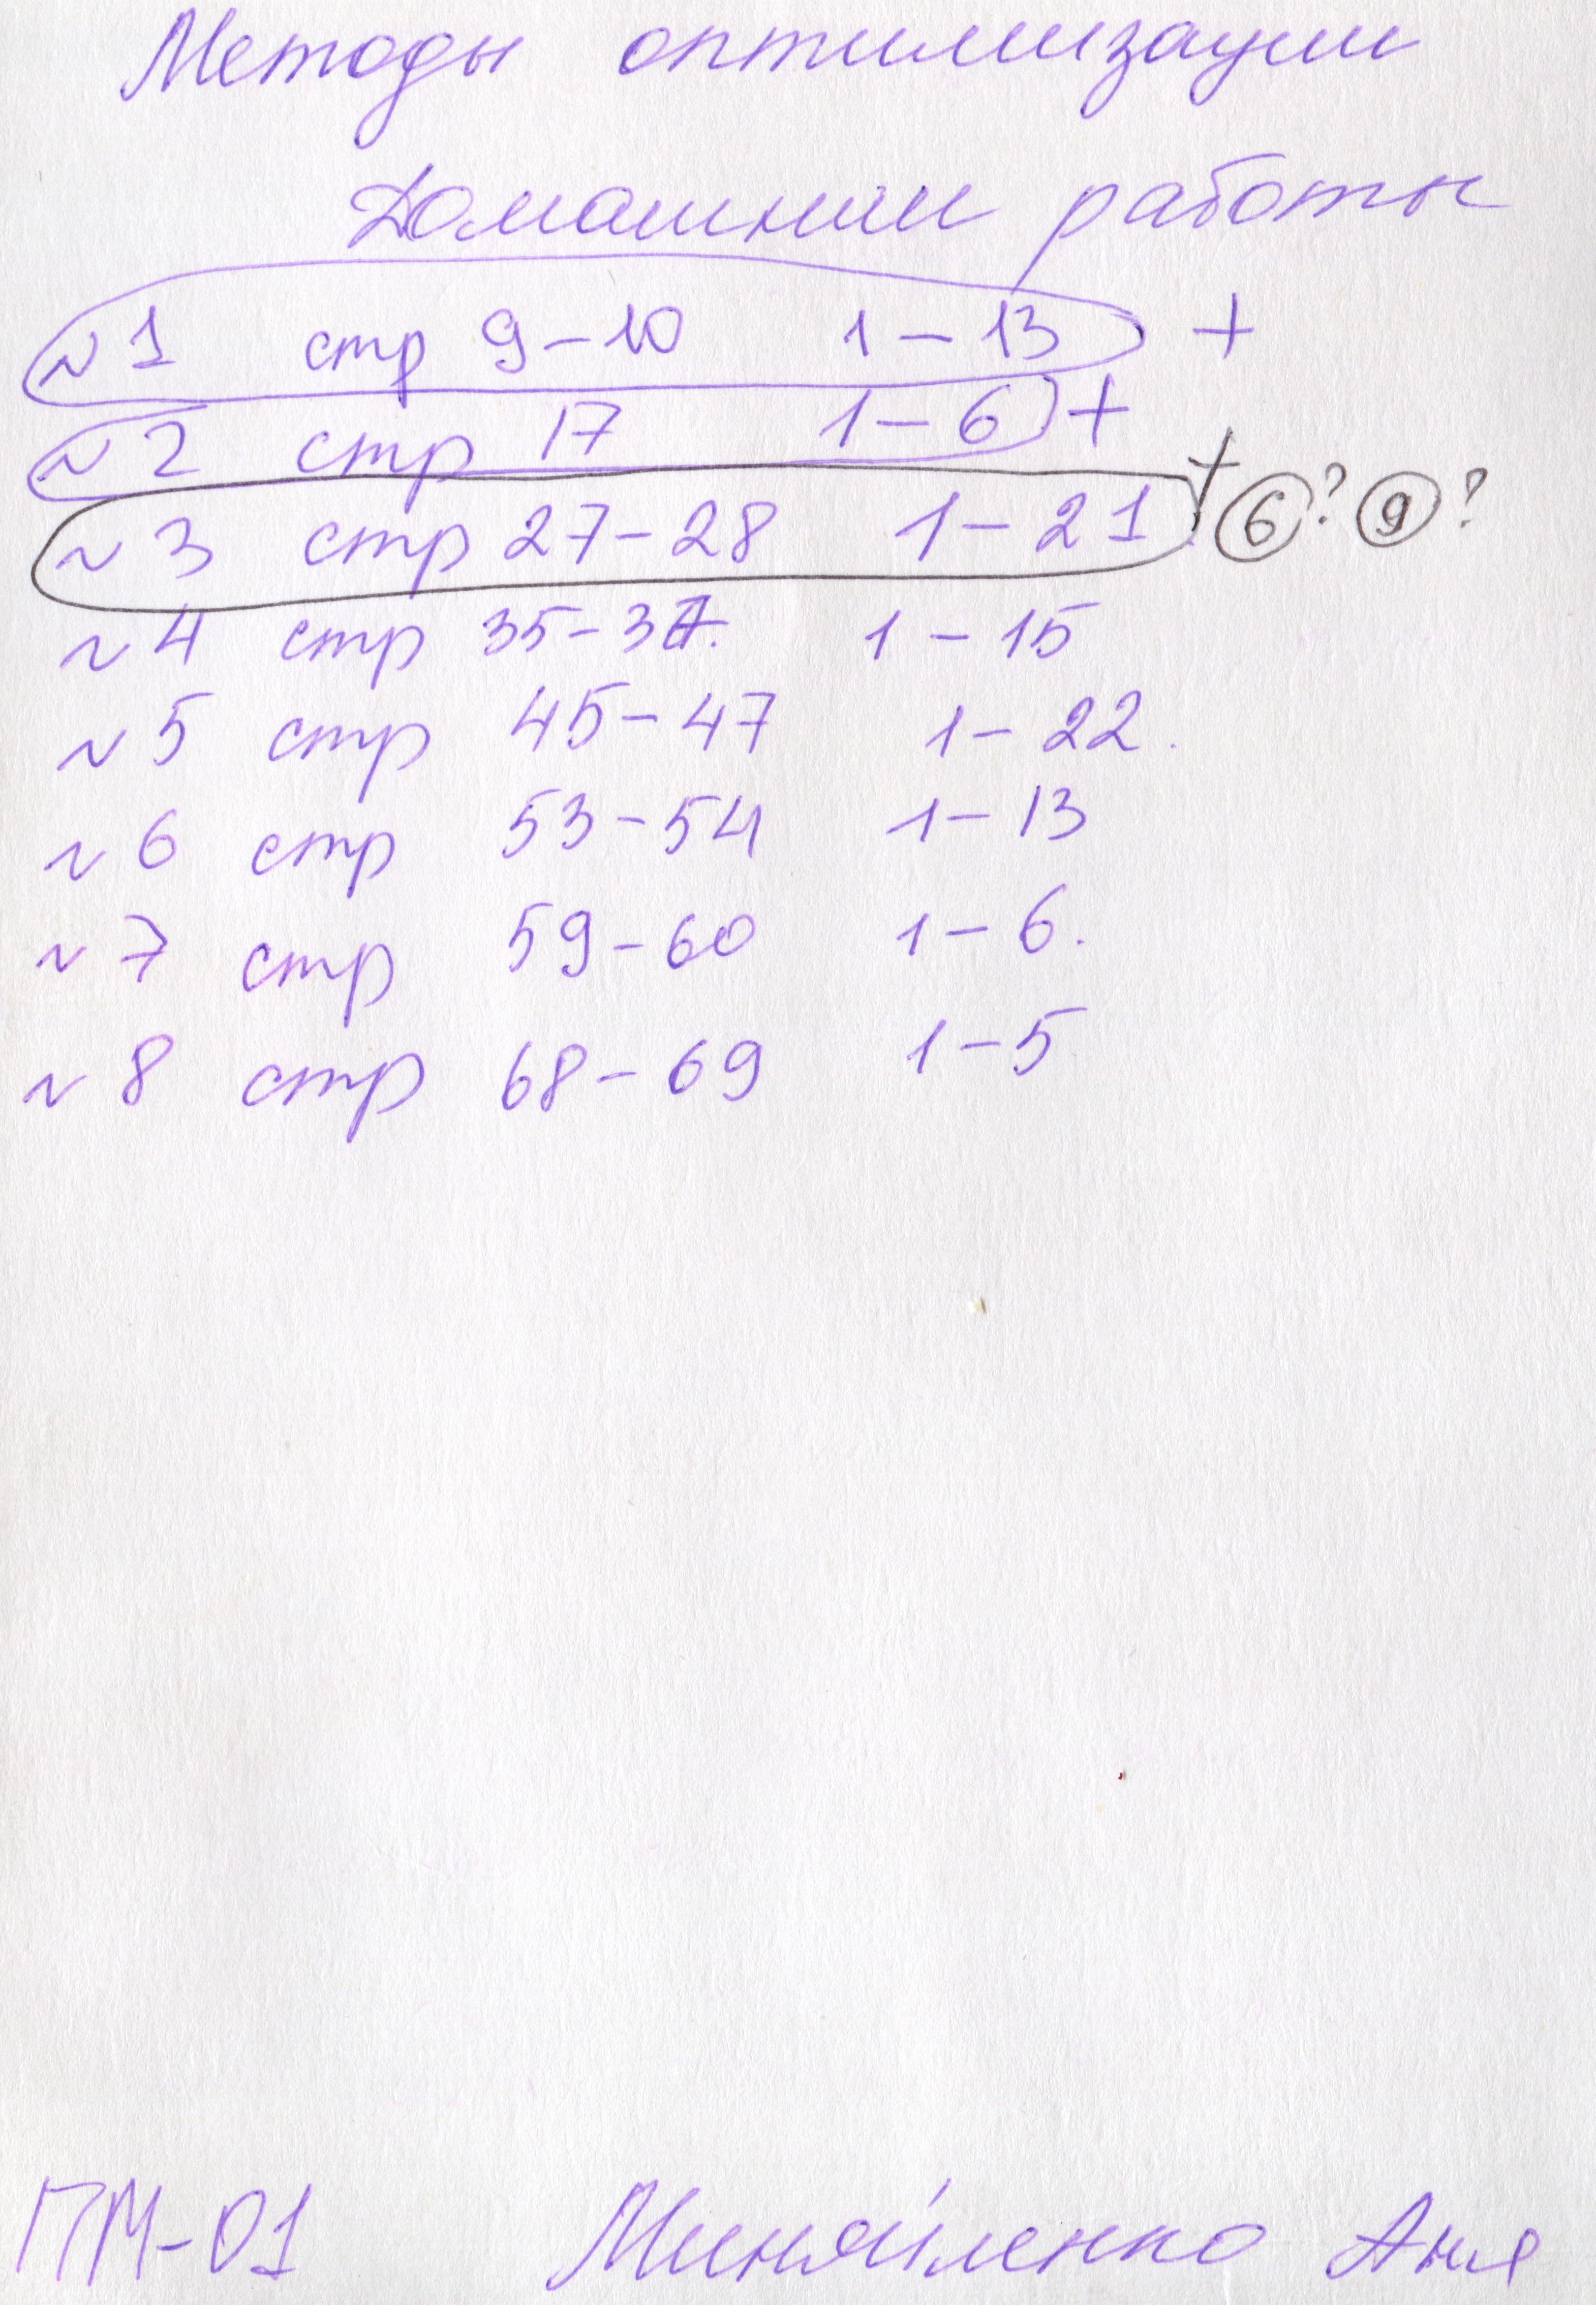 Методы оптимизации
Домашнии работы
№1 стр 9-10 1-13 +
№2 стр 17 1-6 +
№3 стр 27-28 1-21 + 6? 9?
№4 стр 35-37. 1-15
№5 стр 45-47 1-22.
№6 стр 53-54 1-13
№7 стр 59-60 1-6.
№8 стр 68-69 1-5
ПМ-01 Миняйленко Аня